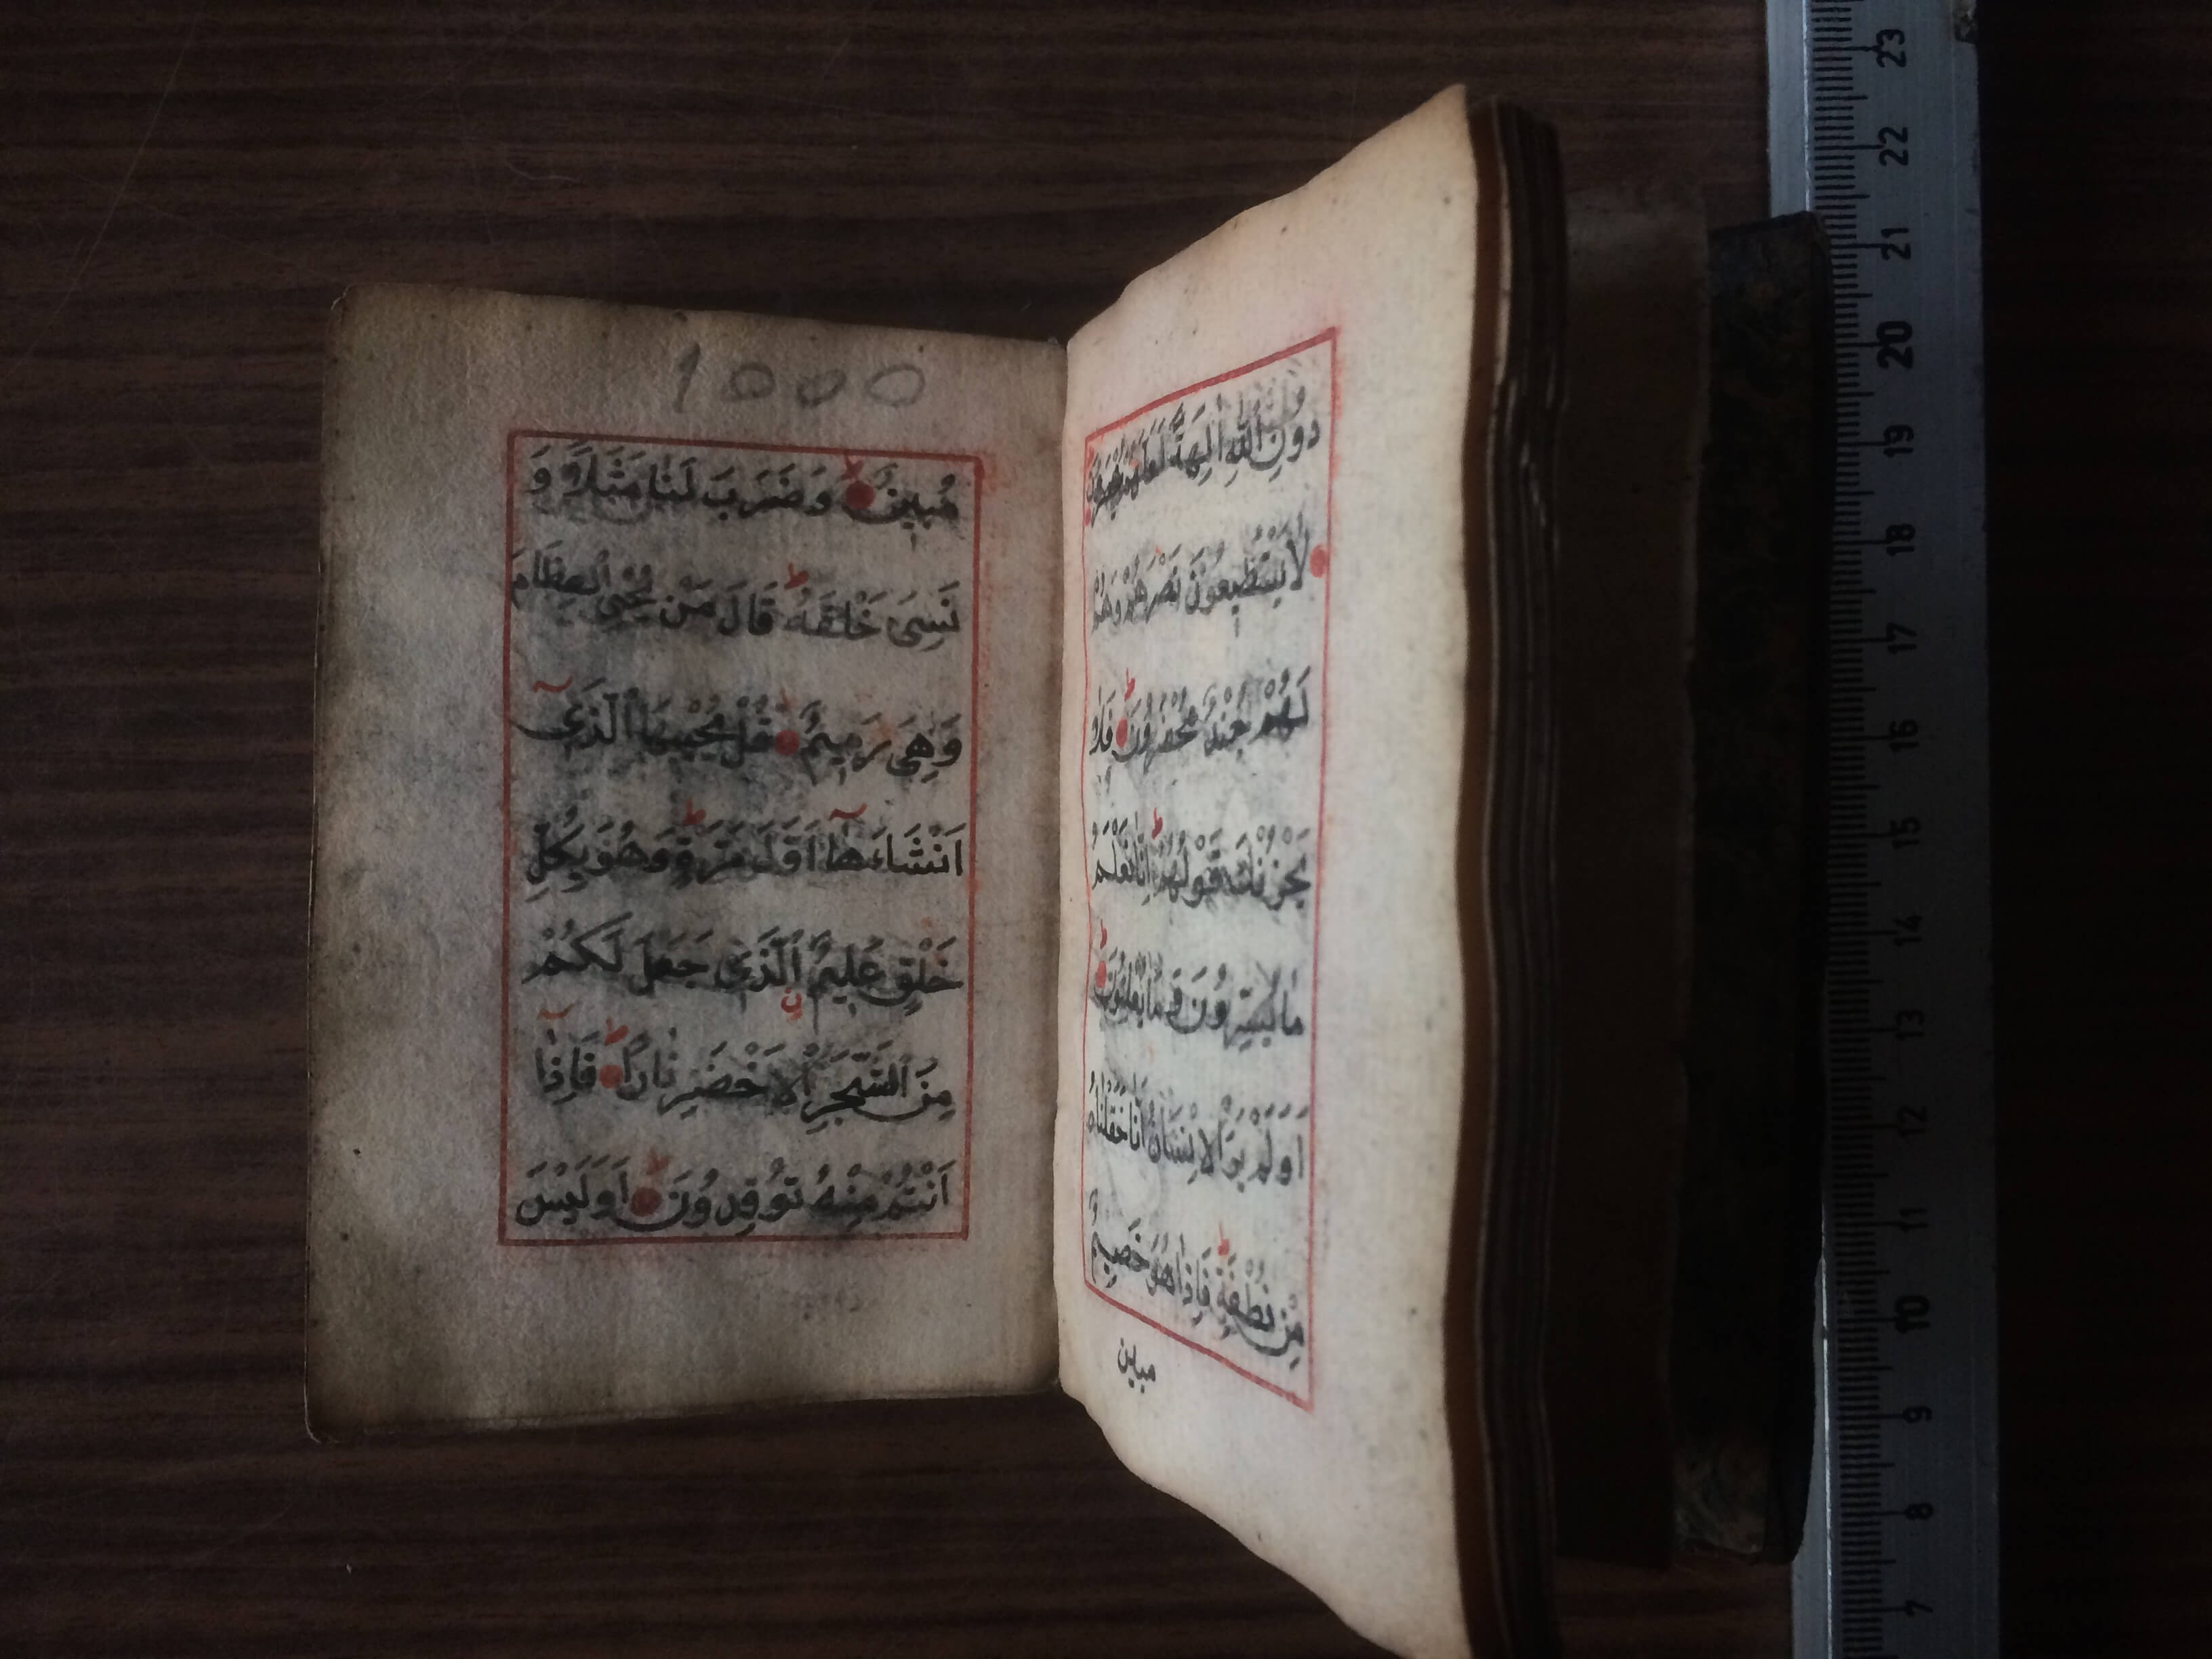 دُونِ اللَّهِ اٰلِهَةً لَعَلَّهُمْ يُنْصَرُونَ
لَا يَسْتَطِيعُونَ نَصْرَهُمْ وَهُمْ
لَهُمْ جُنْدٌ مُحْضَرُونَ فَلَا
يَحْزُنْكَ قَوْلُهُمْ اِنَّا نَعْلَمُ
مَا يُسِرُّونَ وَمَا يُعْلِنُونَ
اَوَلَمْ يَرَ الْاِنْسَانُ اَنَّا خَلَقْنَاهُ
مِنْ نُطْفَةٍ فَاِذَا هُوَ خَصِيمٌ
مبين
1000
مُبِينٌ وَضَرَبَ لَنَا مَثَلًا وَ
نَسِىَ خَلْقَهُ قَالَ مَنْ يُحْيِى الْعِظَامَ
وَهِىَ رَمِيمٌ قُلْ يُحْيِيهَا الَّذِى
اَنْشَاءَهَا اَوَّلَ مَرَّةٍ وَهُوَ بِكُلِّ
خَلْقٍ عَلِيمٌ الَّذِى جَعَلَ لَكُمْ
مِنَ الشَّجَرِ الْاَخْضَرِ نَارًا فَاِذَا
اَنْتُمْ مِنْهُ تُوقِدُونَ اَوَلَيْسَ
7 8 9 10 11 12 13 14 15 16 17 18 19 20 21 22 23